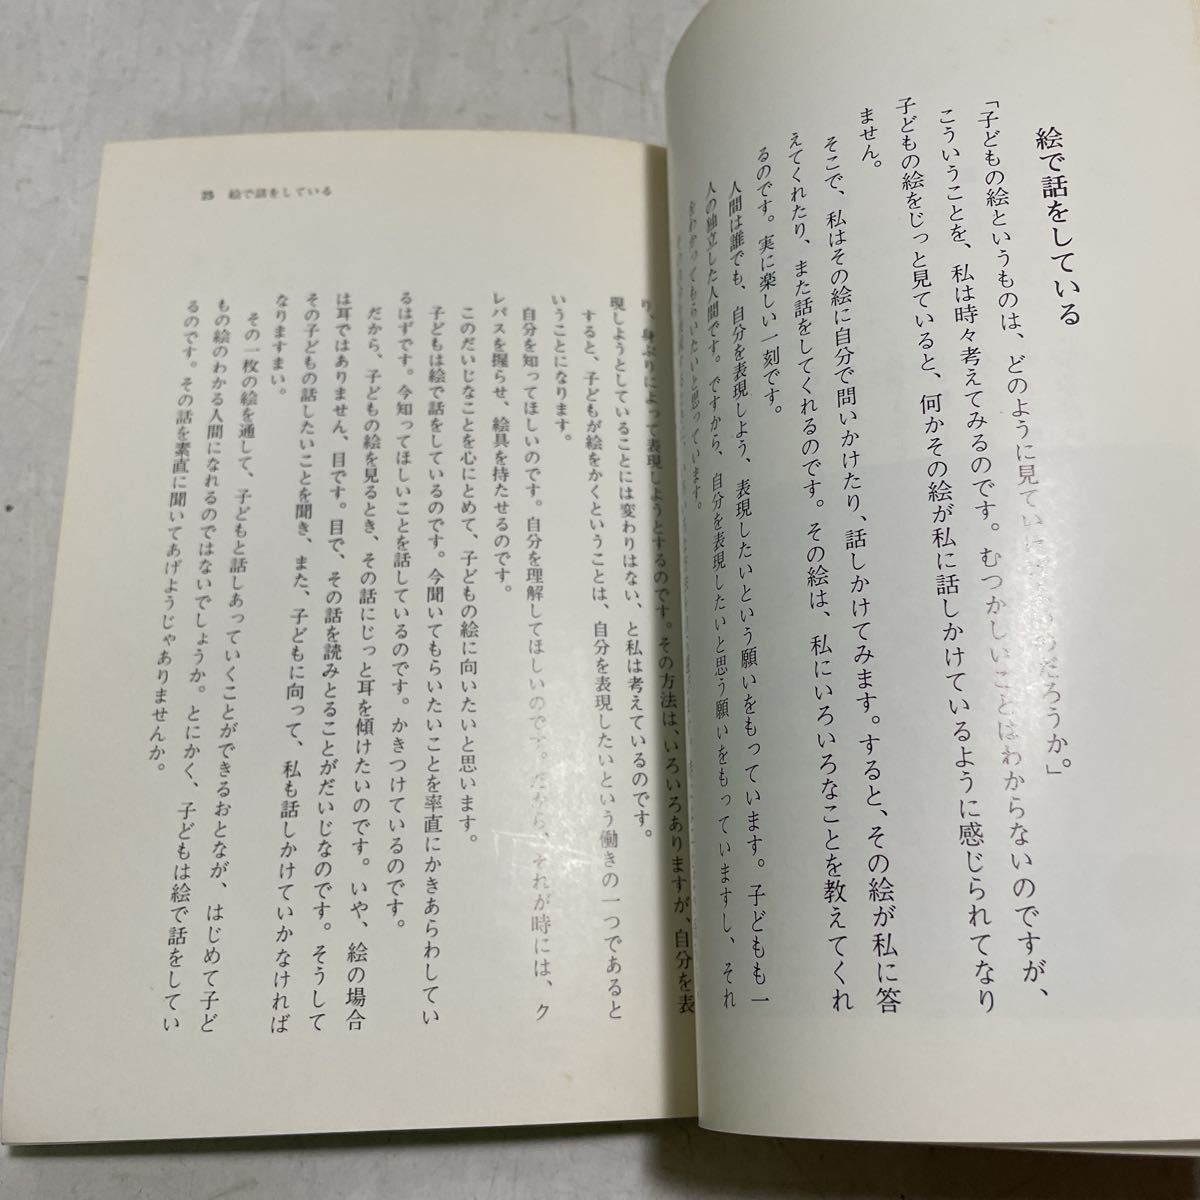 絵で話をしている
「子どもの絵というものは、どのように見てい だろうか。」
こういうことを、私は時々考えてみるのです。むつかしいことはわからないのですが、
子どもの絵をじっと見ていると、何かその絵が私に話しかけているように感じられてなり
ません。
そこで、私はその絵に自分で問いかけたり、話しかけてみます。すると、その絵が私に答
えてくれたり、また話をしてくれるのです。その絵は、私にいろいろなことを教えてくれ
るのです。実に楽しい一刻です。
人間は誰でも、自分を表現しよう、表現したいという願いをもっています。子どもも一
人の独立した人間です。ですから、自分を表現したいと思う願いをもっていますし、それ
をわかってもらいたいと思っています。
り、身ぶりによって表現しようとするのです。その方法は、いろいろありますが、自分を表
現しようとしていることには変わりはない、と私は考えているのです。
すると、子どもが絵をかくということは、自分を表現したいという働きの一つであると
いうことになります。
自分を知ってほしいのです。自分を理解してほしいのです。だから、それが時には、ク
レパスを握らせ、絵具を持たせるのです。
このだいじなことを心にとめて、子どもの絵に向いたいと思います。
子どもは絵で話をしているのです。今聞いてもらいたいことを率直にかきあらわしてい
るはずです。今知ってほしいことを話しているのです。かきつけているのです。
だから、子どもの絵を見るとき、その話にじっと耳を傾けたいのです。いや、絵の場合
は耳ではありません、目です。目で、その話を読みとることがだいじなのです。そうして
その子どもの話したいことを聞き、また、子どもに向って、私も話しかけていかなければ
なりますまい。
その一枚の絵を通して、子どもと話しあっていくことができるおとなが、はじめて子ど
もの絵のわかる人間になれるのではないでしょうか。とにかく、子どもは絵で話をしてい
るのです。その話を素直に聞いてあげようじゃありませんか。
絵で話をしている